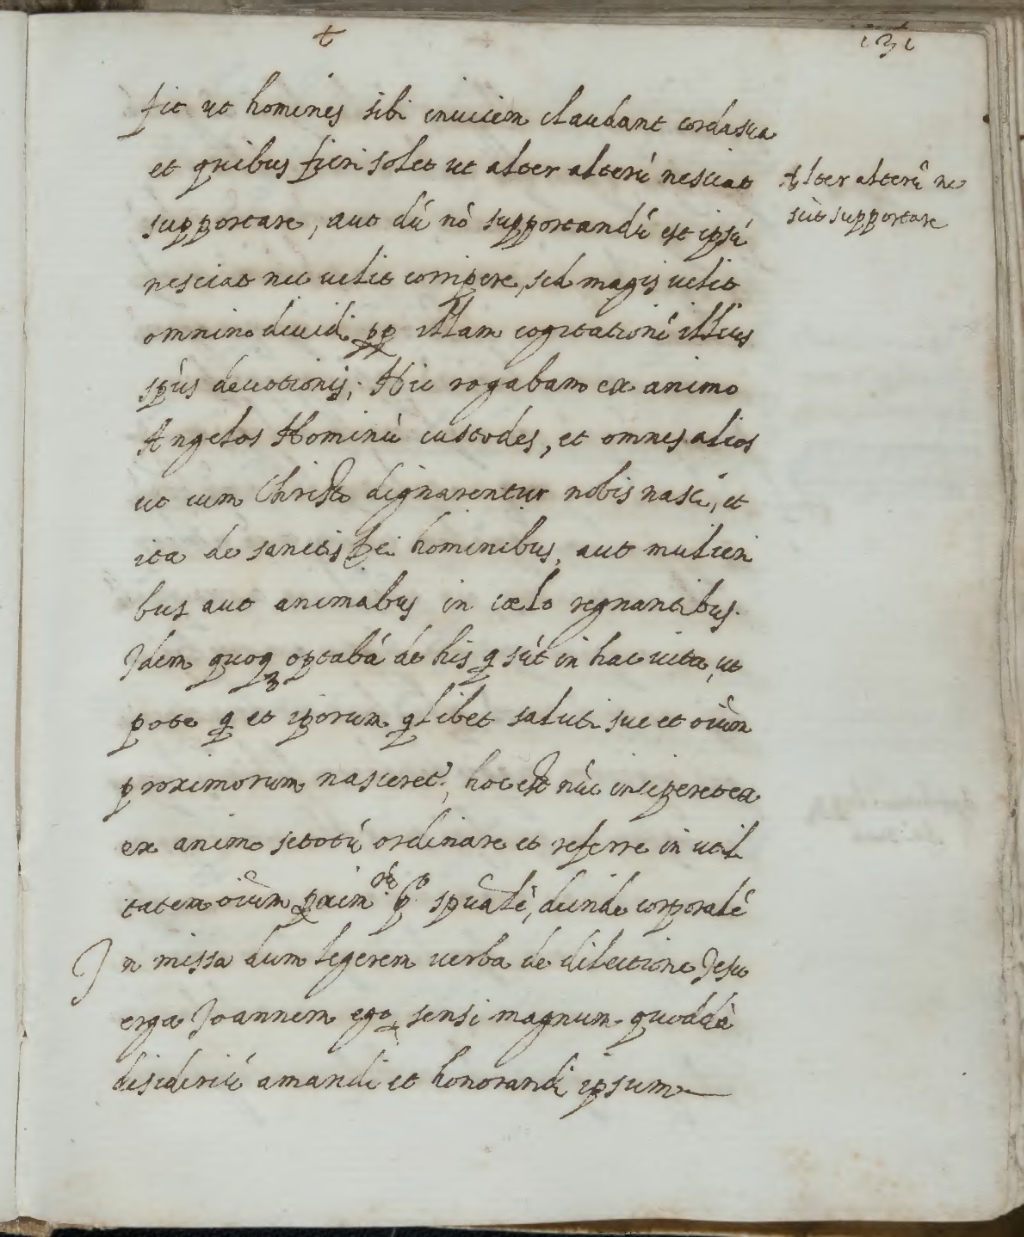 t
131
fit ut homines sibi inuicem claudant corda sua
et quibus fieri solet ut alter alterú nesciat
Alter alterú ne
scit supportare
supportare, aut dú nò supportandú est ipsú
nesciat nec uelit corripere, sed magis uelit
omnino diuidi pp illam cogitationé illius
spùs deuotionis; Hic rogabam ex animo
Angelos Hominù custodes, et omnes alios
ut cum Christo dignarentur nobis nasci, et
ita de sanctis Dei hominibus, aut mulieri
bus aut animabus in cœlo regnantibus.
Idem quoq optabá de his q sút in hac uita, ut
pote q et ipsorum qlibet saluti sue et oium
proximorum nasceret, hoc est núc inciperet ea
ex animo se totú ordinare et referre in utili
tatem oium proxim. pº spualé, deinde corporalé
In missa dum legerem uerba de dilectione Jesu
erga Joannem ego sensi magnum quoddà
desideriú amandi et honorandi ipsum